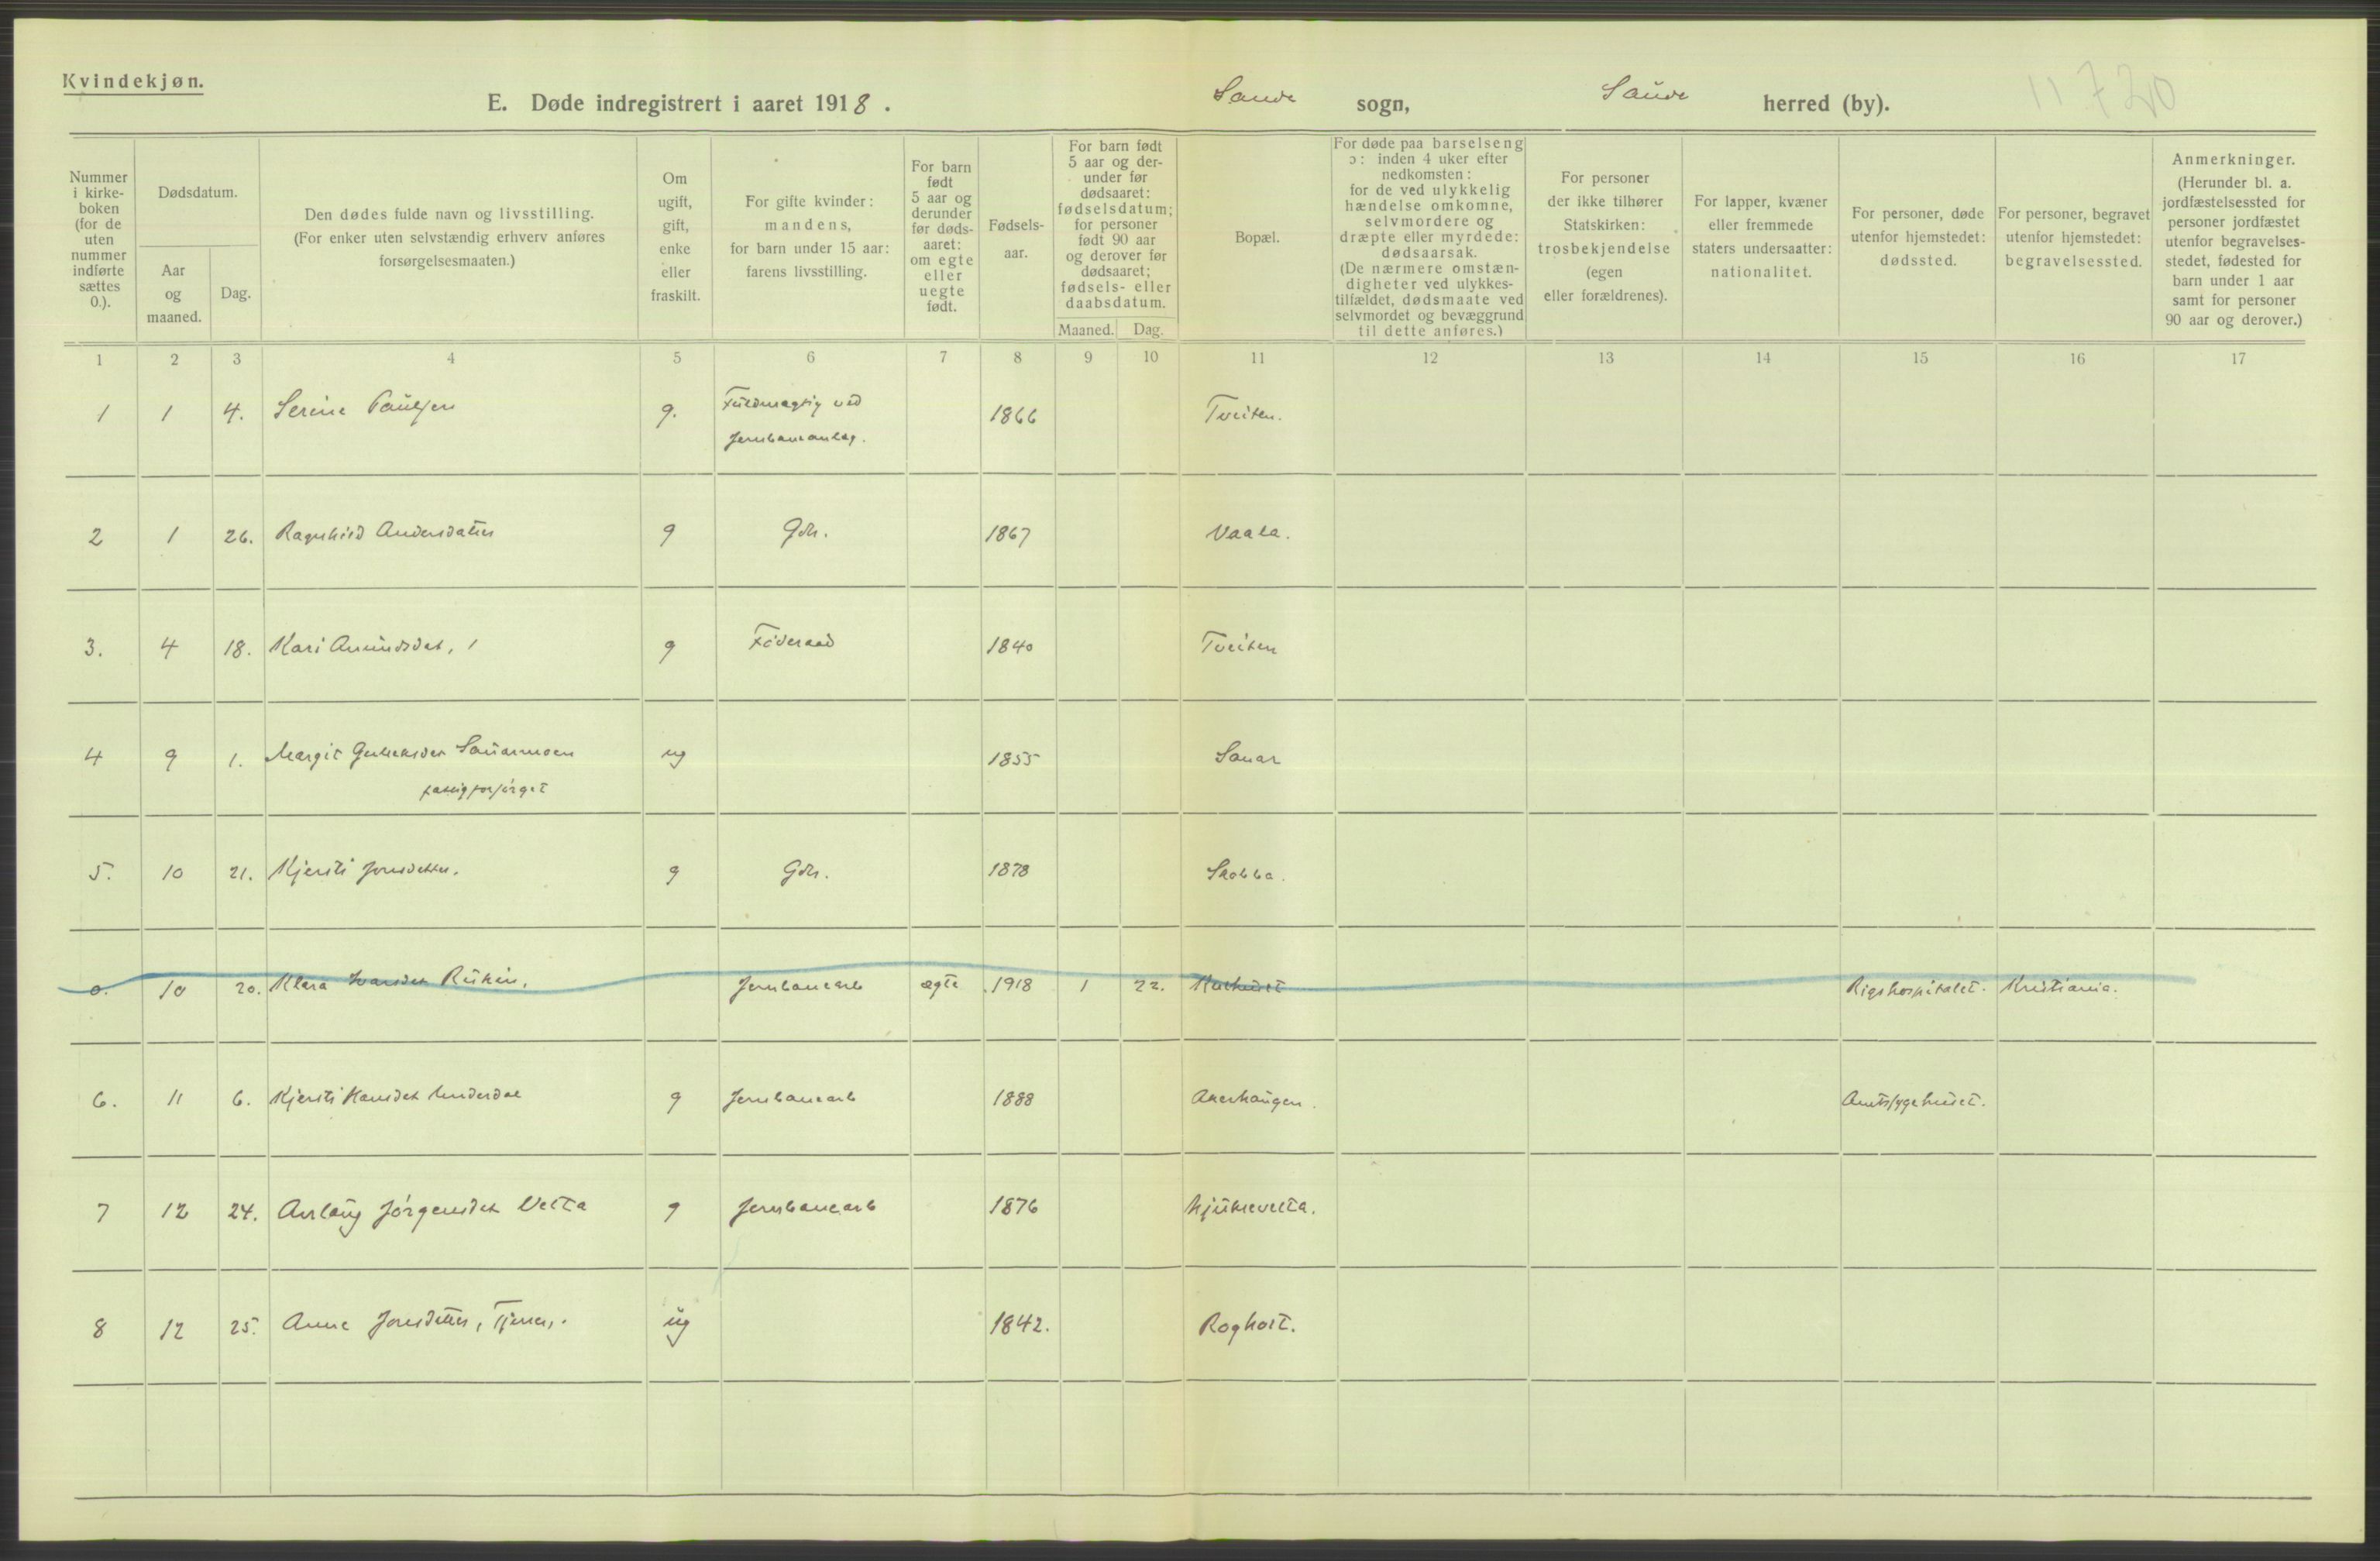 Kvindekjøn.
E. Døde indregistrert i aaret 1918. Saude sogn, Saude herred (by). 11 720
Nummer i kirke- boken (for de uten nummer indførte sættes 0.).
Dødsdatum.
Aar og maaned.
Dag.
Den dødes fulde navn og livsstilling.
(For enker uten selvstændig erhverv anføres
forsørgelsesmaaten.)
Om
ugift,
gift,
enke
eller
fraskilt.
For gifte kvinder:
mandens,
for barn under 15 aar:
farens livsstilling.
For barn
født
5 aar og
derunder
før døds-
aaret:
om egte
eller
uegte
født.
Fødsels-
aar.
For barn født
5 aar og der-
under før
dødsaaret:
fødselsdatum;
for personer
født 90 aar
og derover før
dødsaaret;
fødsels- eller
daabsdatum.
Maaned. Dag.
Bopæl.
For døde paa barselseng
ɔ: inden 4 uker efter
nedkomsten:
for de ved ulykkelig
hændelse omkomne,
selvmordere og
dræpte eller myrdede:
dødsaarsak.
(De nærmere omstæn-
digheter ved ulykkes-
tilfældet, dødsmaate ved
selvmordet og bevæggrund
til dette anføres.)
For personer
der ikke tilhører
Statskirken:
trosbekjendelse
(egen
eller forældrenes).
For lapper, kvæner
eller fremmede
staters undersaatter:
nationalitet.
For personer, døde
utenfor hjemstedet:
dødssted.
For personer, begravet
utenfor hjemstedet:
begravelsessted.
Anmerkninger.
(Herunder bl. a.
jordfæstelsessted for
personer jordfæstet
utenfor begravelses-
stedet, fødested for
barn under 1 aar
samt for personer
90 aar og derover.)
1 2 3 4 5 6 7 8 9 10 11 12 13 14 15 16 17
1 1 4. Serine Paulsen g. Fuldmægtig ved 1866 Tveiten.
Jernbaneanlæg.
2 1 26. Ragnhild Andersdatter g Gdr. 1867 Vaala.
3. 4 18. Kari Amundsdat, g Føderaad 1840 Tveiten
4 9 1. Margit Sauarmoen ug 1855 Sauar
fattigforsørget
5. 10 21. Kjersti Jonsdatter. g Gdr. 1878
0. 10 20. Klara Ivarsdat Rukin, Jernbanearb ægte 1918 1 22. Rigshospitalet. Kristiania.
6. 11 6. Kjersti Hansdat Underdal g Jernbanearb 1888 Akerhaugen. Amtssygehuset.
7 12 24. Aslaug Jørgensdat Vetta g Jernbanearb 1876
8 12 25. Anne Jonsdatter, Tjener. ug 1842. Rogholt.